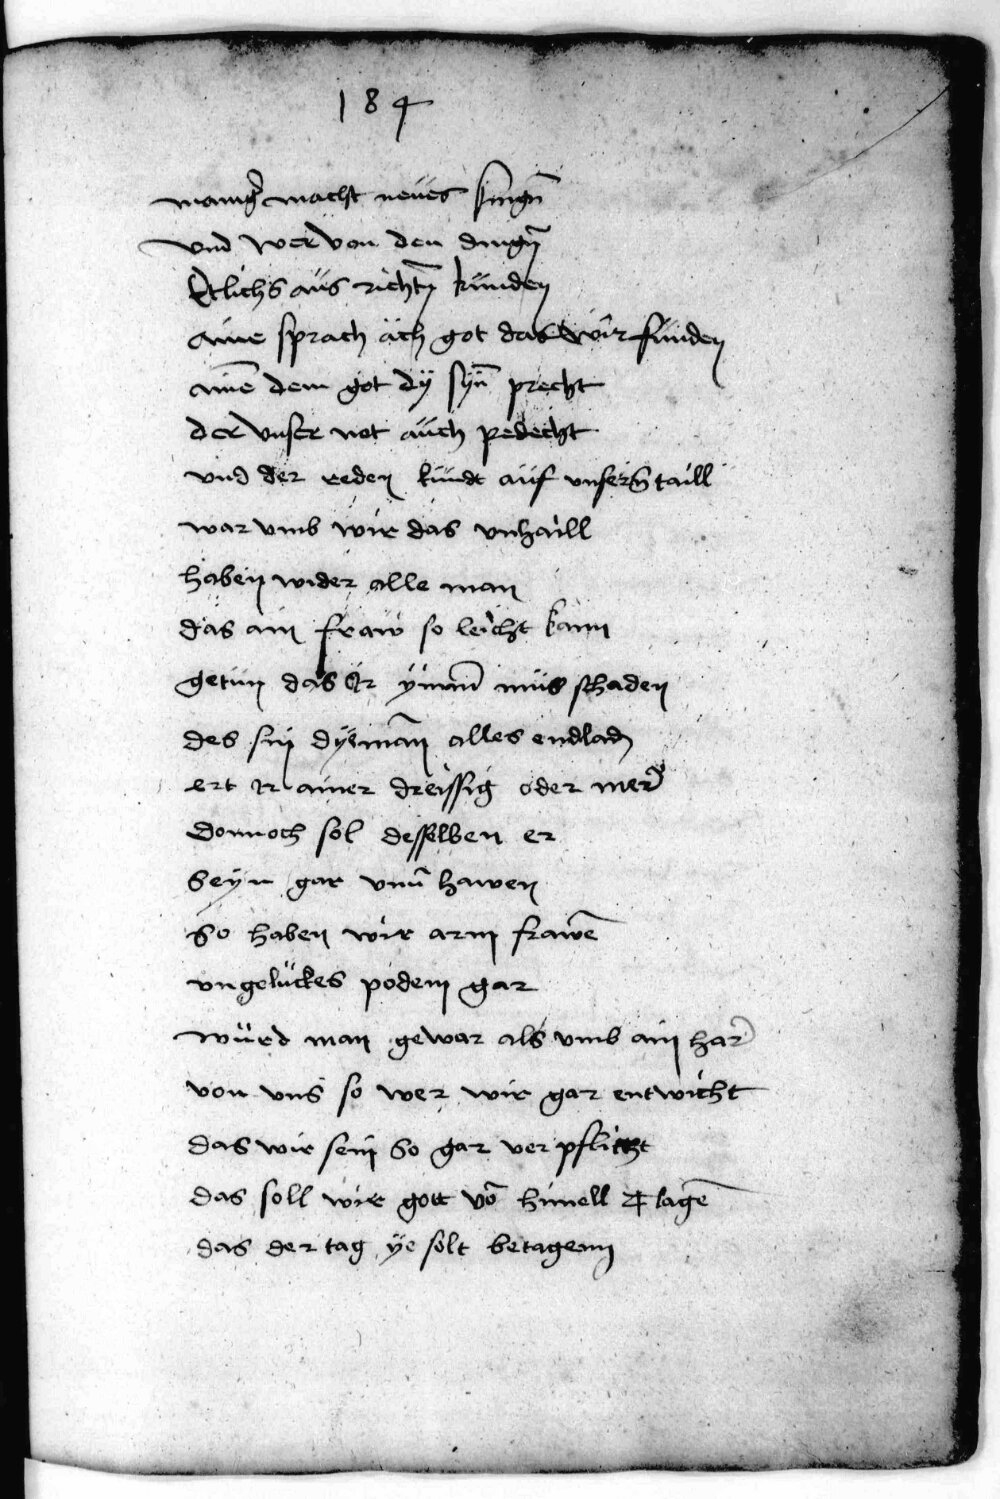 184
manig̃ macht neües singñ
vnd wer von den dingñ
Etlichs aüs richtñ kunden
aine sprach ach got das wir funden
aine dem got dÿ sÿñ precht
der vnser not aüch pedecht
vnd der reden kündt aüf vnserñ taill
war vmb wir das vnhaill
haben wider alle man
das ain fraw so leicht kann
getün das Ir ÿm̃ müs schaden
des sin dÿ man alles endladñ
ert Ir ainer dreissig oder mer
Donnoch sol desselben er
Seyn gar vnũ hawen
So haben wir arm frawẽ
vngelückes podem gar
würd man gewar als vmb ain har
von vns so wer wir gar entwicht
das wir sein so gar ver pflicht
das soll wir gott võ himell klagẽ
das der tag ÿe solt betagenn